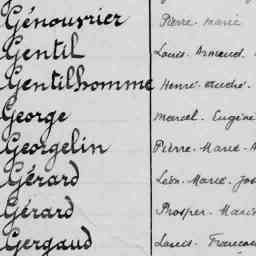 Génouvrier Pierre-Marie
Gentil Louis-Armand.
Gentilhomme Henri-André.
George Marcel-Eugène
Georgelin Pierre-Marie-A
Gérard Léon-Marie-Jos
Gérard Prosper-Marie
Gergaud Louis-François